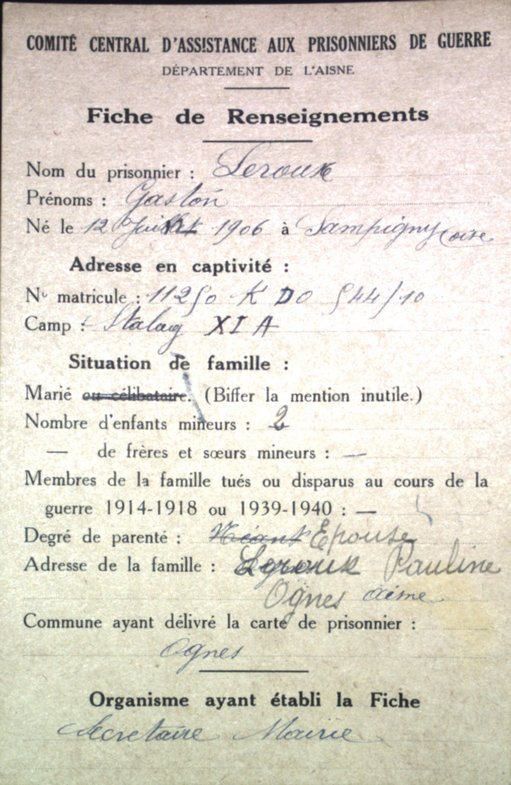 COMITÉ CENTRAL D'ASSISTANCE AUX PRISONNIERS DE GUERRE
DÉPARTEMENT DE L'AISNE
Fiche de Renseignements
Nom du prisonnier : Leroux
Prénoms : Gaston
Né le 12 Juillet 1906 à Sampigny Oise
Adresse en captivité :
N° matricule : 11250 K DO 544/10
Camp : Stalag XI A
Situation de famille :
Marié ou célibataire. (Biffer la mention inutile.)
Nombre d'enfants mineurs : 2
— de frères et sœurs mineurs : —
Membres de la famille tués ou disparus au cours de la
guerre 1914-1918 ou 1939-1940 : —
Degré de parenté : Néant Epouse
Adresse de la famille : Leroux Pauline
Ognes Aisne
Commune ayant délivré la carte de prisonnier :
Ognes
Organisme ayant établi la Fiche
Secretaire Mairie